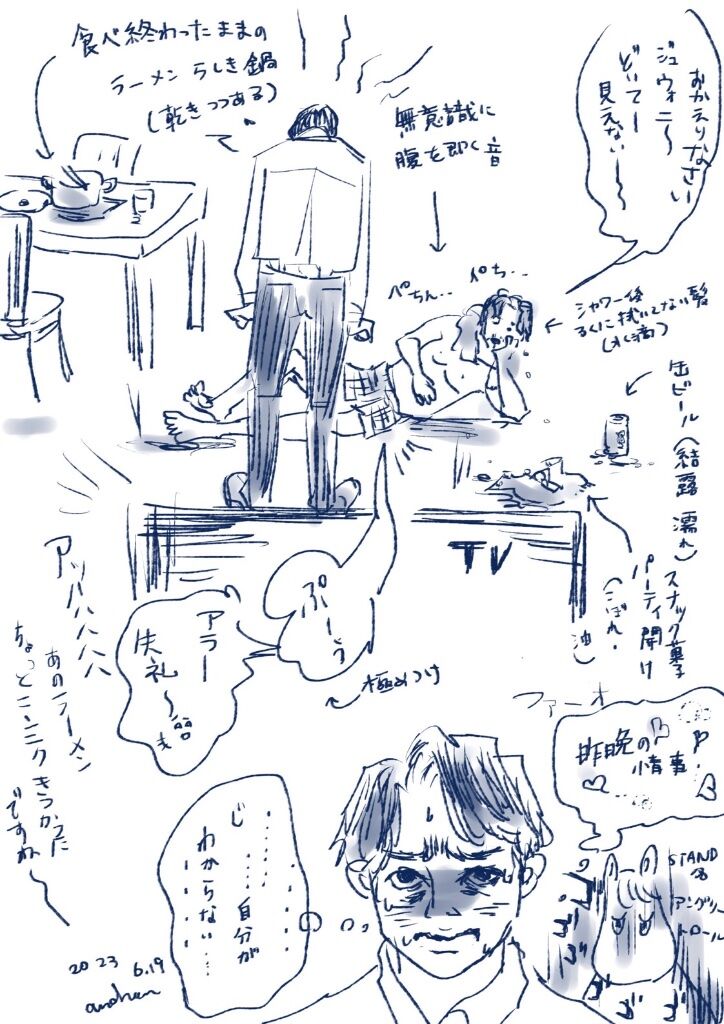 食べ終わったままの
ラーメンらしき鍋
(乾きつつある)
無意識に
腹を叩く音
おかえりなさい
ジュウォニ〜
どいてー
見えない〜
ぺちん..
ペち..
シャワー後
ろくに拭いてない髪
(水滴)
缶ビール(結露 濡れ)
スナック菓子
パーティ開け
(こぼれ・油)
TV
ぷ〜う
アラー
失礼〜
極めつけ
アッハハハハ
あのラーメン
ちょっとニンニクきつかった
ですね〜
ファーオ
昨晩の
情事
STAND名
アングリー
トロール
じ
自分が
わからない…
2023 6.19